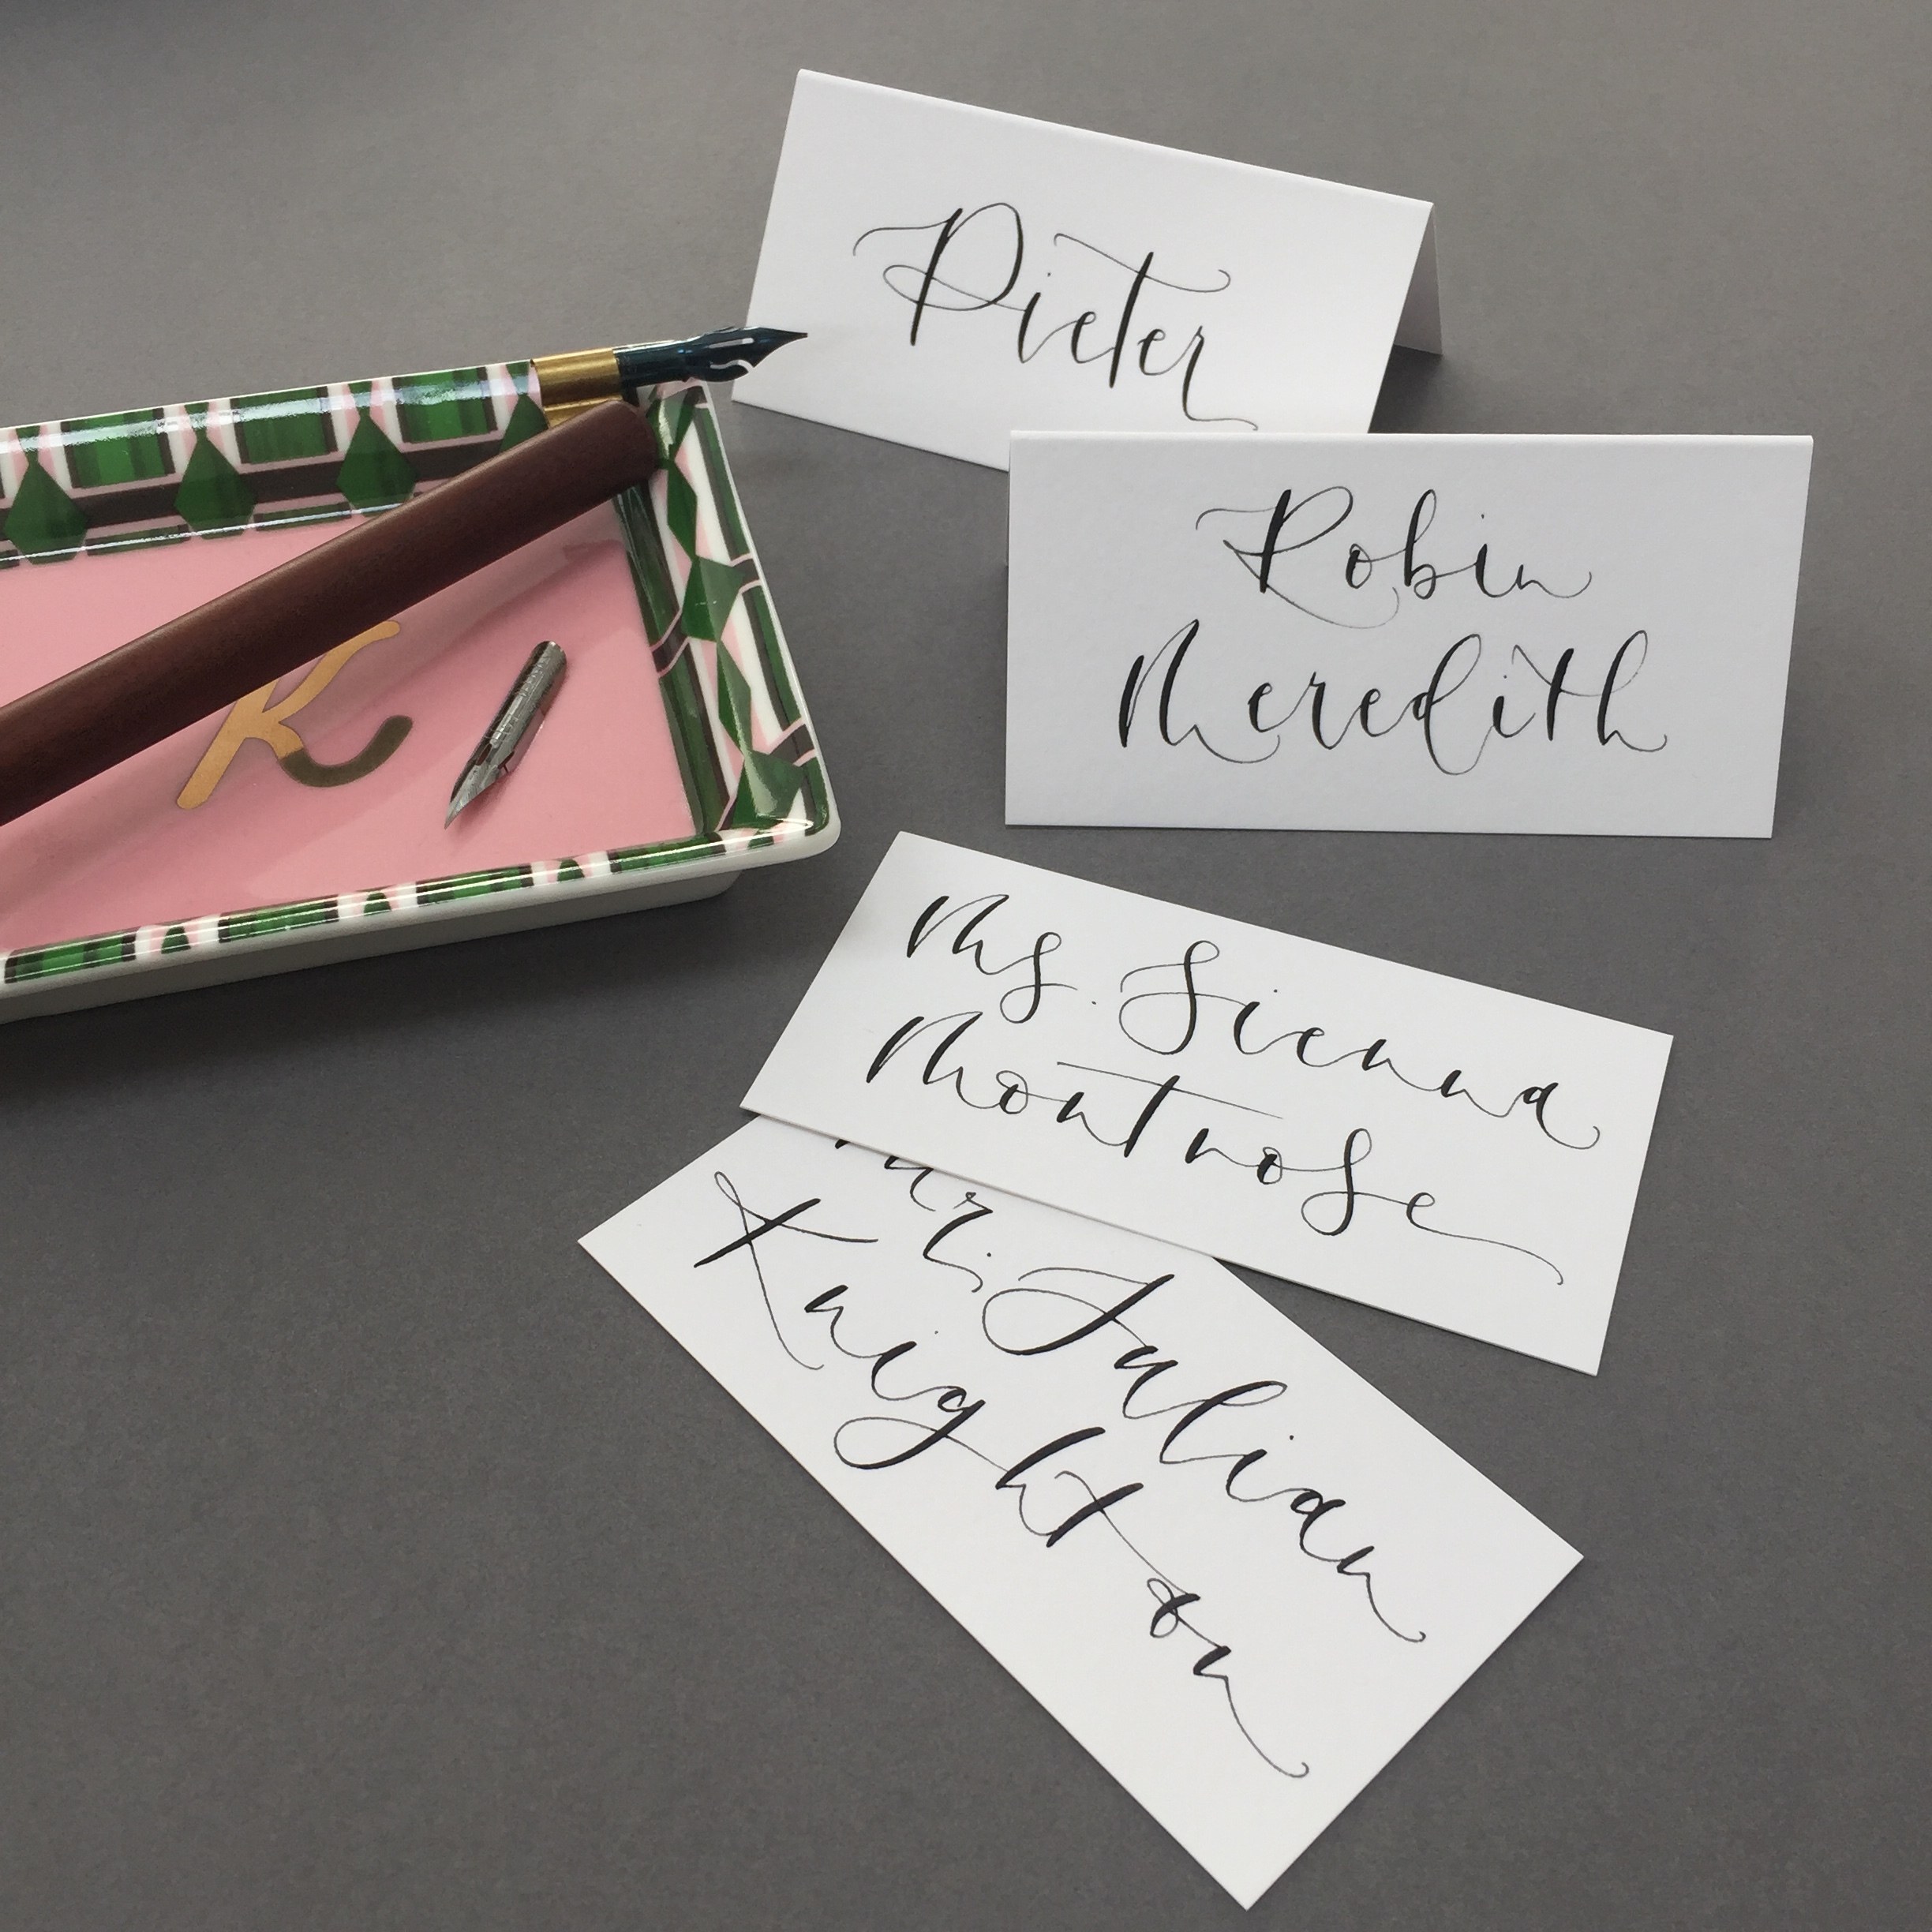 Pieter
Robin
Meredith
Ms. Sienna
Montrose
Mr. Julian
Knighton
K